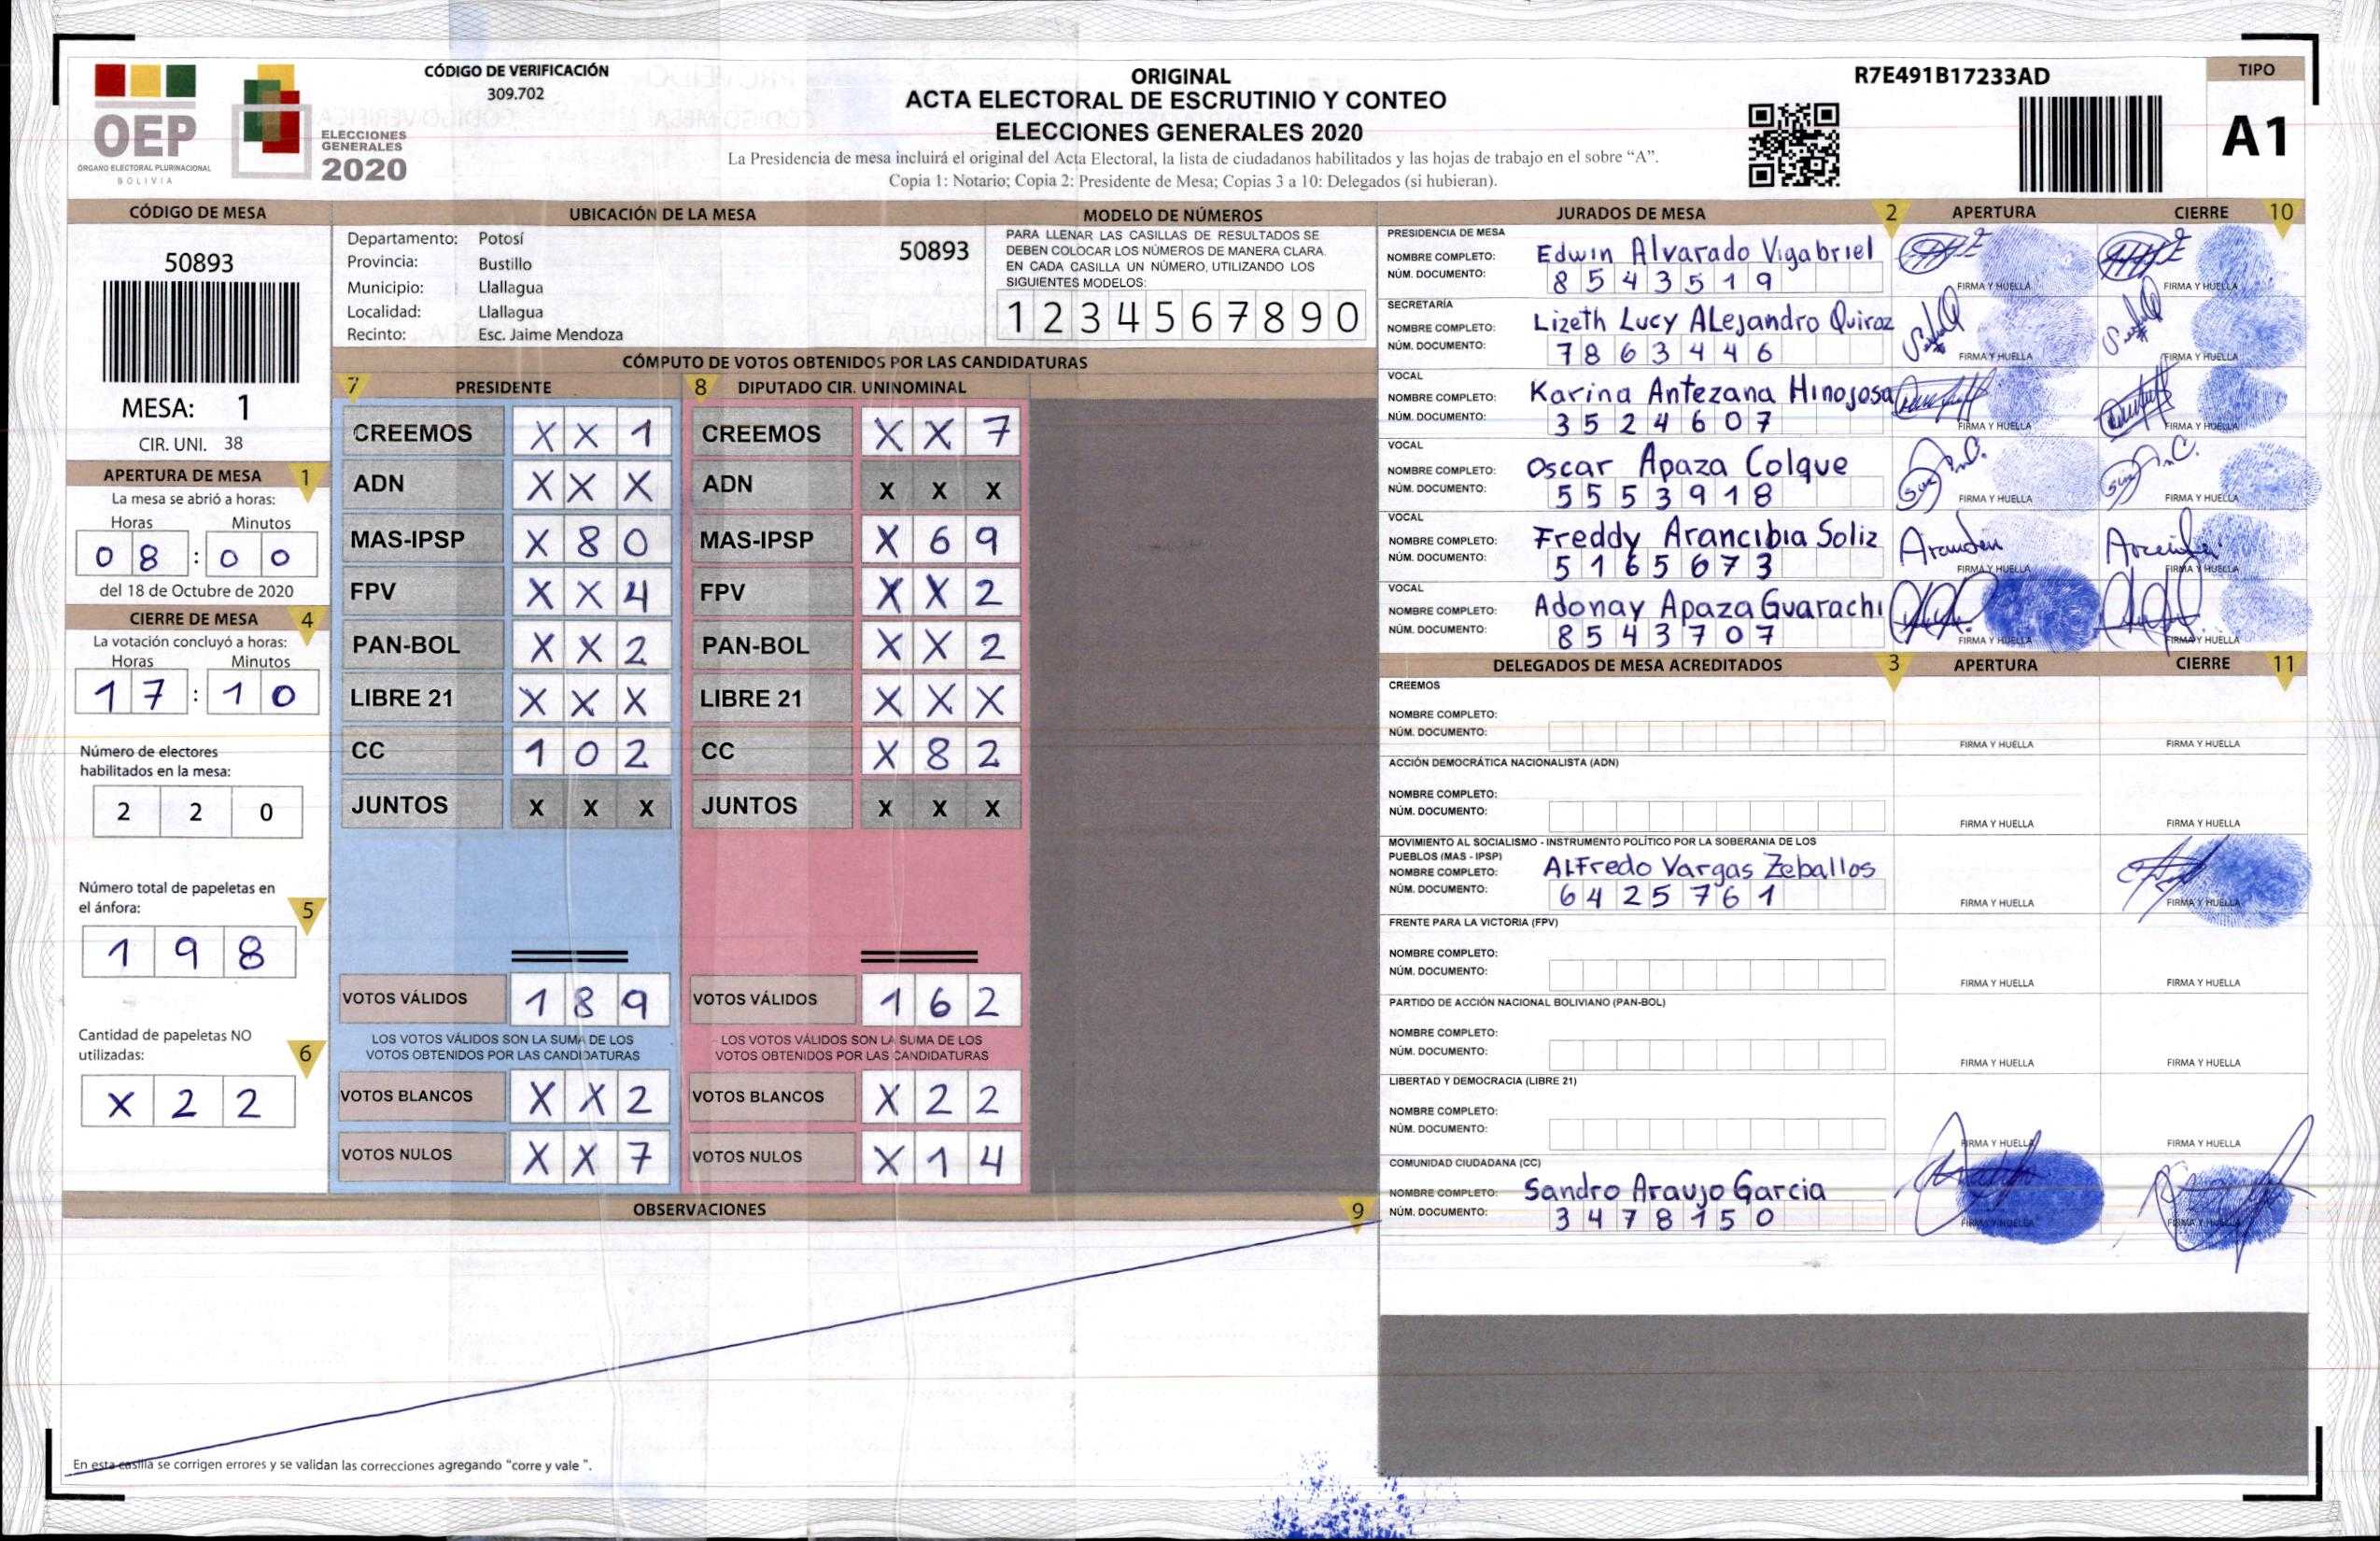 OEP
ÓRGANO ELECTORAL PLURINACIONAL
BOLIVIA
ELECCIONES
GENERALES
2020
CÓDIGO DE VERIFICACIÓN
309.702
ORIGINAL
ACTA ELECTORAL DE ESCRUTINIO Y CONTEO
ELECCIONES GENERALES 2020
La Presidencia de mesa incluirá el original del Acta Electoral, la lista de ciudadanos habilitados y las hojas de trabajo en el sobre “A”.
Copia 1: Notario; Copia 2: Presidente de Mesa; Copias 3 a 10: Delegados (si hubieran).
R7E491B17233AD
TIPO
A1
CÓDIGO DE MESA
50893
MESA: 1
CIR. UNI. 38
APERTURA DE MESA 1
La mesa se abrió a horas:
Horas Minutos
0 8 : 0 0
del 18 de Octubre de 2020
CIERRE DE MESA 4
La votación concluyó a horas:
Horas Minutos
1 7 : 1 0
Número de electores
habilitados en la mesa:
2 2 0
Número total de papeletas en
el ánfora: 5
1 9 8
Cantidad de papeletas NO
utilizadas: 6
X 2 2
UBICACIÓN DE LA MESA
Departamento: Potosí
50893
Provincia: Bustillo
Municipio: Llallagua
Localidad: Llallagua
Recinto: Esc. Jaime Mendoza
MODELO DE NÚMEROS
PARA LLENAR LAS CASILLAS DE RESULTADOS SE
DEBEN COLOCAR LOS NÚMEROS DE MANERA CLARA.
EN CADA CASILLA UN NÚMERO, UTILIZANDO LOS
SIGUIENTES MODELOS:
1 2 3 4 5 6 7 8 9 0
CÓMPUTO DE VOTOS OBTENIDOS POR LAS CANDIDATURAS
7 PRESIDENTE 8 DIPUTADO CIR. UNINOMINAL
CREEMOS X X 1 CREEMOS X X 7
ADN X X X ADN X X X
MAS-IPSP X 8 0 MAS-IPSP X 6 9
FPV X X 4 FPV X X 2
PAN-BOL X X 2 PAN-BOL X X 2
LIBRE 21 X X X LIBRE 21 X X X
CC 1 0 2 CC X 8 2
JUNTOS X X X JUNTOS X X X
VOTOS VÁLIDOS 1 8 9 VOTOS VÁLIDOS 1 6 2
LOS VOTOS VÁLIDOS SON LA SUMA DE LOS LOS VOTOS VÁLIDOS SON LA SUMA DE LOS
VOTOS OBTENIDOS POR LAS CANDIDATURAS VOTOS OBTENIDOS POR LAS CANDIDATURAS
VOTOS BLANCOS X X 2 VOTOS BLANCOS X 2 2
VOTOS NULOS X X 7 VOTOS NULOS X 1 4
OBSERVACIONES 9
En esta casilla se corrigen errores y se validan las correcciones agregando “corre y vale ”.
JURADOS DE MESA 2 APERTURA CIERRE 10
PRESIDENCIA DE MESA
NOMBRE COMPLETO: Edwin Alvarado Vigabriel
NÚM. DOCUMENTO: 8 5 4 3 5 1 9
FIRMA Y HUELLA FIRMA Y HUELLA
SECRETARÍA
NOMBRE COMPLETO: Lizeth Lucy ALejandro Quiroz
NÚM. DOCUMENTO: 7 8 6 3 4 4 6
FIRMA Y HUELLA FIRMA Y HUELLA
VOCAL
NOMBRE COMPLETO: Karina Antezana Hinojosa
NÚM. DOCUMENTO: 3 5 2 4 6 0 7
FIRMA Y HUELLA FIRMA Y HUELLA
VOCAL
NOMBRE COMPLETO: Oscar Apaza Colque
NÚM. DOCUMENTO: 5 5 5 3 9 1 8
FIRMA Y HUELLA FIRMA Y HUELLA
VOCAL
NOMBRE COMPLETO: Freddy Arancibia Soliz
NÚM. DOCUMENTO: 5 1 6 5 6 7 3
FIRMA Y HUELLA FIRMA Y HUELLA
VOCAL
NOMBRE COMPLETO: Adonay Apaza Guarachi
NÚM. DOCUMENTO: 8 5 4 3 7 0 7
FIRMA Y HUELLA FIRMA Y HUELLA
DELEGADOS DE MESA ACREDITADOS 3 APERTURA CIERRE 11
CREEMOS
NOMBRE COMPLETO:
NÚM. DOCUMENTO:
FIRMA Y HUELLA FIRMA Y HUELLA
ACCIÓN DEMOCRÁTICA NACIONALISTA (ADN)
NOMBRE COMPLETO:
NÚM. DOCUMENTO:
FIRMA Y HUELLA FIRMA Y HUELLA
MOVIMIENTO AL SOCIALISMO - INSTRUMENTO POLÍTICO POR LA SOBERANIA DE LOS
PUEBLOS (MAS - IPSP)
NOMBRE COMPLETO: ALFredo Vargas Zeballos
NÚM. DOCUMENTO: 6 4 2 5 7 6 1
FIRMA Y HUELLA FIRMA Y HUELLA
FRENTE PARA LA VICTORIA (FPV)
NOMBRE COMPLETO:
NÚM. DOCUMENTO:
FIRMA Y HUELLA FIRMA Y HUELLA
PARTIDO DE ACCIÓN NACIONAL BOLIVIANO (PAN-BOL)
NOMBRE COMPLETO:
NÚM. DOCUMENTO:
FIRMA Y HUELLA FIRMA Y HUELLA
LIBERTAD Y DEMOCRACIA (LIBRE 21)
NOMBRE COMPLETO:
NÚM. DOCUMENTO:
FIRMA Y HUELLA FIRMA Y HUELLA
COMUNIDAD CIUDADANA (CC)
NOMBRE COMPLETO: Sandro Araujo Garcia
NÚM. DOCUMENTO: 3 4 7 8 1 5 0
FIRMA Y HUELLA FIRMA Y HUELLA